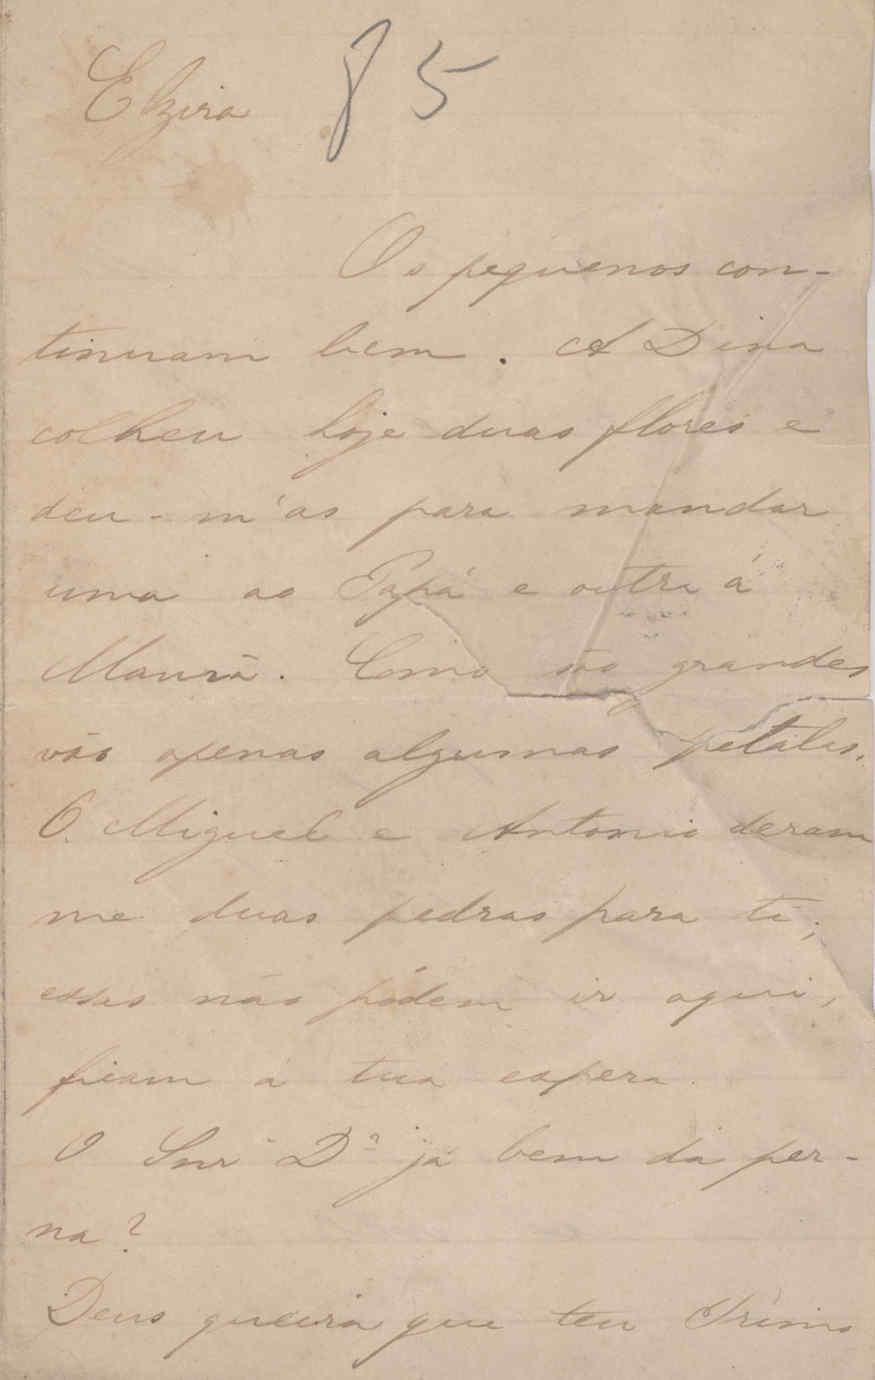 Elzira 85
Os pequenos con-
tinuam bem. A Dina
colheu hoje duas flores e
deu-m'as para mandar
uma ao Papá e outra á
Mamã. Como são grandes
vão apenas algumas petalas.
O Miguel e Antonio deram
me duas pedras para ti;
essas não pódem ir aqui,
ficam á tua espera.
O Snr Dr já bem da per-
na?
Deus queira que teu